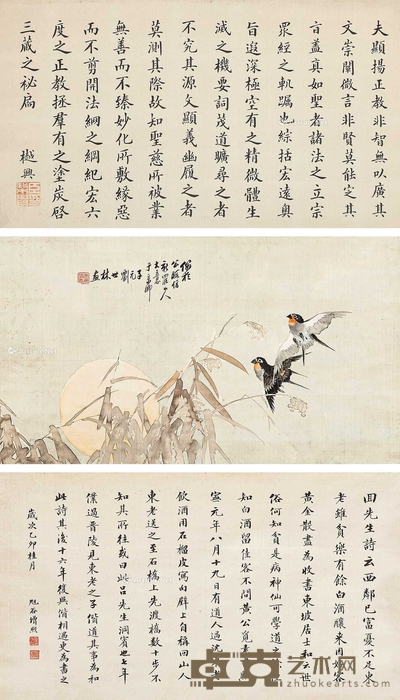 夫顯揚正教非智無以廣其
文崇闡微言非賢莫能定其
旨蓋真如聖者諸法之立宗
眾經之軌躅也綜括宏遠奧
旨遐深極空有之精微體生
滅之機要詞茂道曠尋之者
不究其源文顯義幽履之者
莫測其際故知聖慈所被業
無善而不臻妙化所敷緣惡
而不剪開法網之綱紀宏六
度之正教拯羣有之塗炭啓
三藏之秘扃
樾興
子元劉世林畫
回先生詩云西鄰已富憂不足東
老雖貧樂有餘白酒釀來因好客
黃金散盡為收書東坡居士和云世
俗何知貧是病神仙可學道之
知白酒留佳客不問黃公覓素
寧元年八月十九日有道人過沈
飲酒用石榴皮寫句壁上自稱回山人
東老送之至石橋上先渡橋數十步不
知其所往或曰此呂先生洞賓也七年
僕過晉陵見東老之子偕道其事為和
此詩其後十六年復與偕相遇東為書之
歲次乙卯桂月
卓克艺术网
ZHUOKEARTS.COM